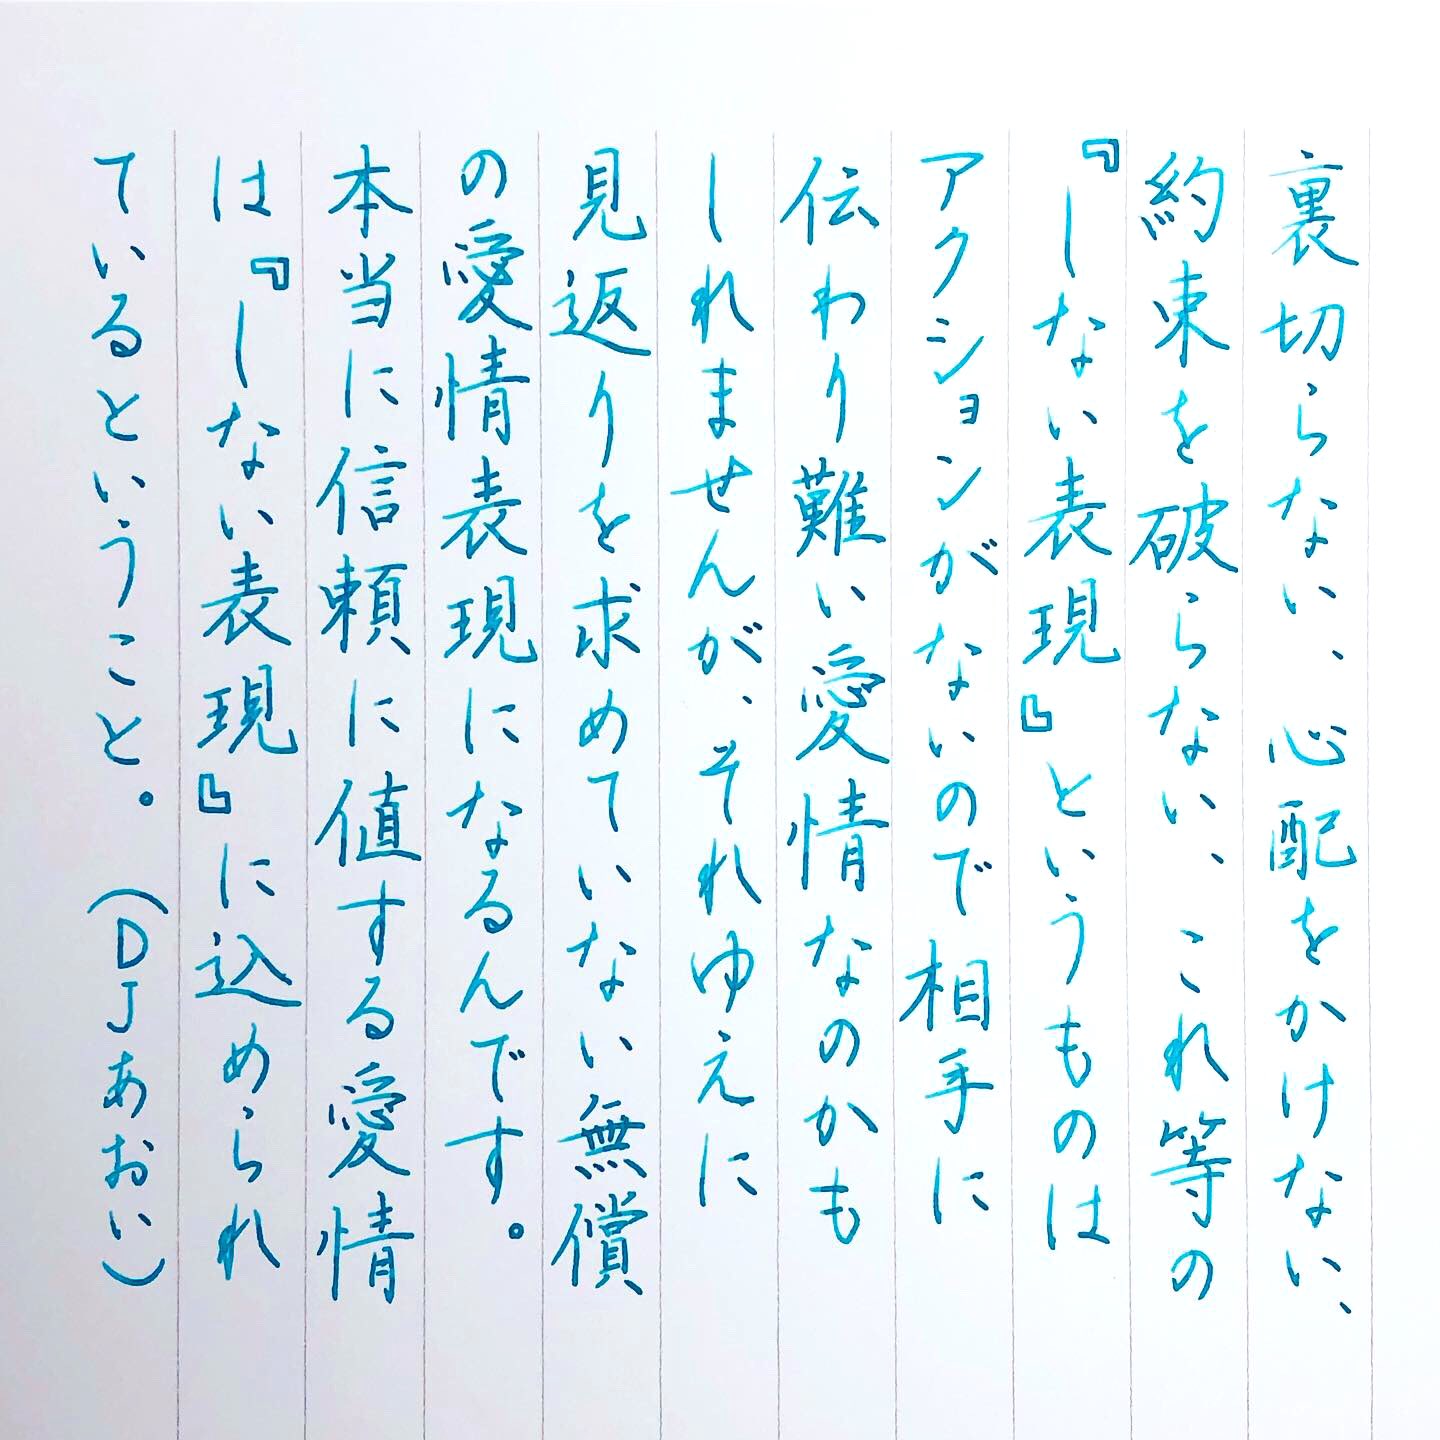 裏切らない、心配をかけない、
約束を破らない、これ等の
『しない表現』というものは
アクションがないので相手に
伝わり難い愛情なのかも
しれませんが、それゆえに
見返りを求めていない無償
の愛情表現になるんです。
本当に信頼に値する愛情
は『しない表現』に込められ
ているということ。（DJあおい）